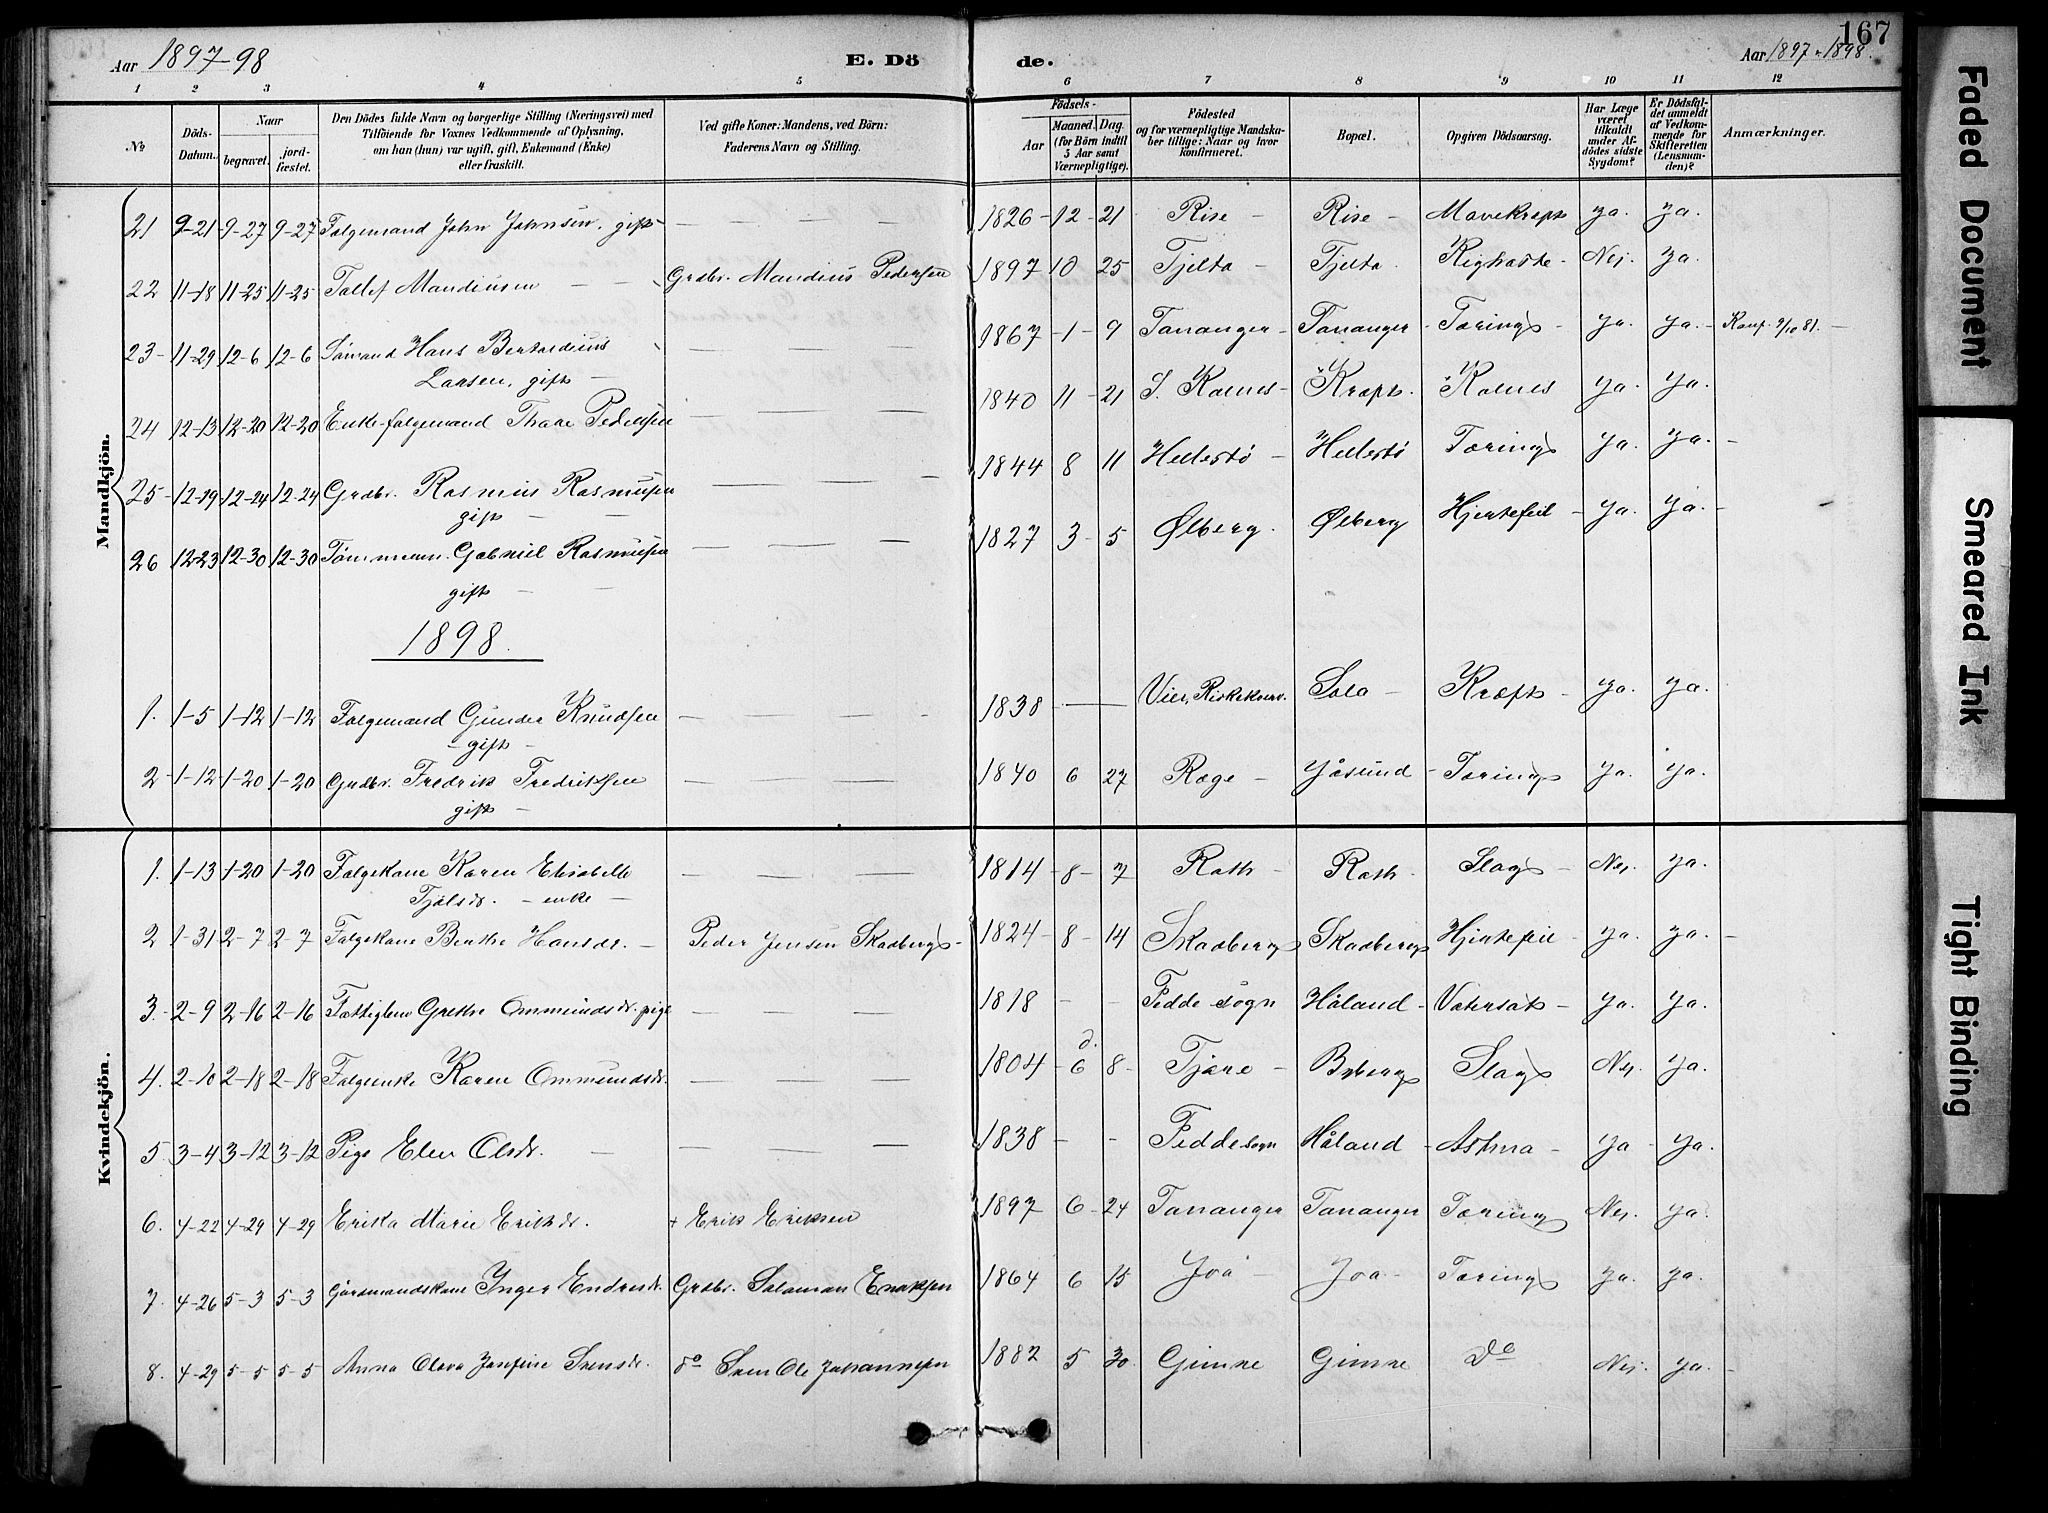 167
Aar 1897-98
E. Dö
de.
Aar 1897 - 1898.
1 2 3 4 5 6 7 8 9 10 11 12
No
Döds-Datum.
Naar
begravet.
jord-fæstet.
Den Dödes fulde Navn og borgerlige Stilling (Næringsvei) med
Tilföiende for Voxnes Vedkommende af Oplysning,
om han (hun) var ugift, gift, Enkemand (Enke)
eller fraskilt.
Ved gifte Koner: Mandens, ved Börn:
Faderens Navn og Stilling.
Födsels-
Aar
Maaned. Dag.
(for Börn indtil
5 Aar samt
Værnepligtige).
Födested
og for værnepligtige Mandska-
ber tillige: Naar og hvor
konfirmeret.
Bopæl.
Opgiven Dödsaarsag.
Har Læge
været
tilkaldt
under Af-
dödes sidste
Sygdom?
Er Dödsfal-
det anmeldt
af Vedkom-
mende for
Skifteretten
(Lensman-
den)?
Anmærkninger.
Mandkjön.
21 9-21 9-27 9-27 Folgemand John Johnsen, gift — — — 1826 - 12 - 21 Rise - Rise - Mavekræft ja. ja.
22 11-18 11-25 11-25 Tollef Mandiusen — Grdbr. Mandius Pedersen 1897 10 25 Tjelta - Tjelta Nej. ja.
23 - 11-29 12-6 12-6 Sömand Hans Bernardius
Larsen, gift — — — — 1867 - 1 - 9 Tananger - Tananger - Tæring - ja. ja. - Konf. 9/10 81. -
24 12-13 12-20 12-20 Enke-folgemand Thore Pedersen — — — 1840 11 - 21 S. Kolnes - Kræft. Kolnes ja. ja.
25 - 12-19 12-24 12-24 Grdbr. Rasmus Rasmusen
gift — — — — 1844 8 11 Hellestö - Hellestö Tæring ja. ja. -
26 12-23 12-30 12-30 Tömmerm. Gabriel Rasmusen
gift — — — — 1827 3 - 5 Ølberg. Ølberg Hjertefeil - ja. ja. -
1898.
1. 1-5 1-12 1-12 Folgemand Gunder Knudsen
- gift - — — — 1838 — — Sola - Kræft - ja. ja.
2 - 1-12 1-20 1-20 Grdbr. Fredrik Fredriksen
gift — — — — 1840 6 27 Ræge - Jåsund - Tæring ja. ja.
Kvindekjön.
1. 1-13 1-20 1-20 Folgekone Karen Elisabette
Tjölsdr. - enke — — — — 1814 - 8 - 7 Roth - Roth - Slag - Nei. ja.
2 1-31 2-7 2-7 Folgekone Berthe Hansdr. — Peder Jensen Skadberg - 1824 - 8 - 14 Skadberg Skadberg Hjertefeil - ja. ja. -
3. 2-9 2-16 2-16 Fattiglem Grethe Ommundsdr. pige — — — 1818 - - Fedde sogn Håland - Vatersot - ja. ja.
4. 2-10 2-18 2-18 Folgeenke Karen Ommundsdr. — — — 1804 - 6 8 - Tjøre - Byberg Slag Nei. ja.
5. 3-4 3-12 3-12 Pige Elen Olsdr. — — — — 1838 - - Feddesogn Håland - Astma - ja - ja.
6. 4-22 4-29 4-29 Erika Marie Eriksdr. + Erik Eriksen 1897 6 - 24 Tananger Tananger Tæring Nei. ja.
7. 4-26 5-3 5-3 Gårdmandskone Inger Endresdr. Grdbr. Salamon Enoksen 1864 6 15 Joa - Joa - Tæring ja. ja.
8. 4-29 5-5 5-5 Anna Olava Josefine Svensdr. do Sven Ole Johannesen 1882 5 30. Gimre Gimre Do Nei. ja. -
Faded Document
Smeared Ink
Tight Binding